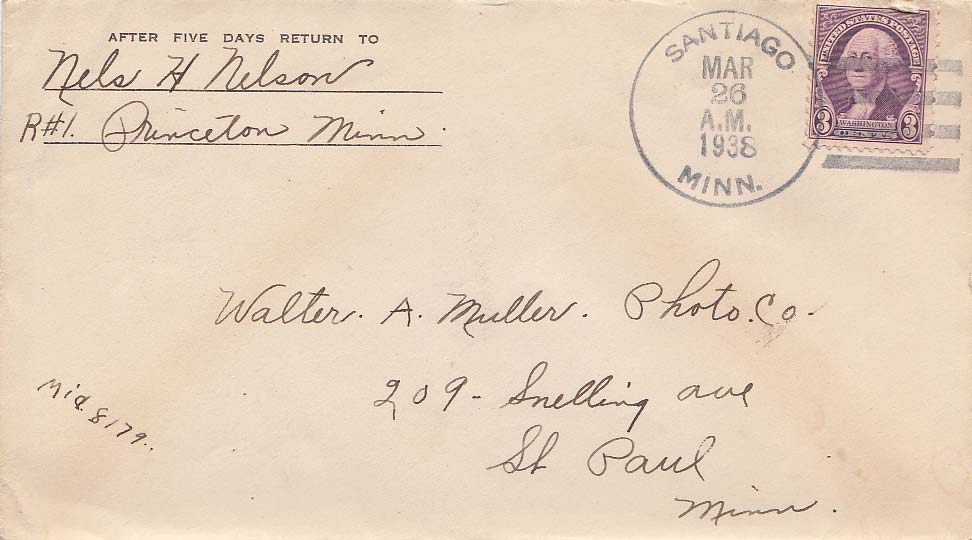 AFTER FIVE DAYS RETURN TO
Nels H Nelson
R#1. Princeton Minn.
SANTIAGO
MAR
26
A.M.
1938
MINN.
UNITED STATES POSTAGE
WASHINGTON
3 CENTS 3
Walter. A. Muller. Photo. Co.
209 - Snelling ave
St Paul
Minn.
Mid. 8179..